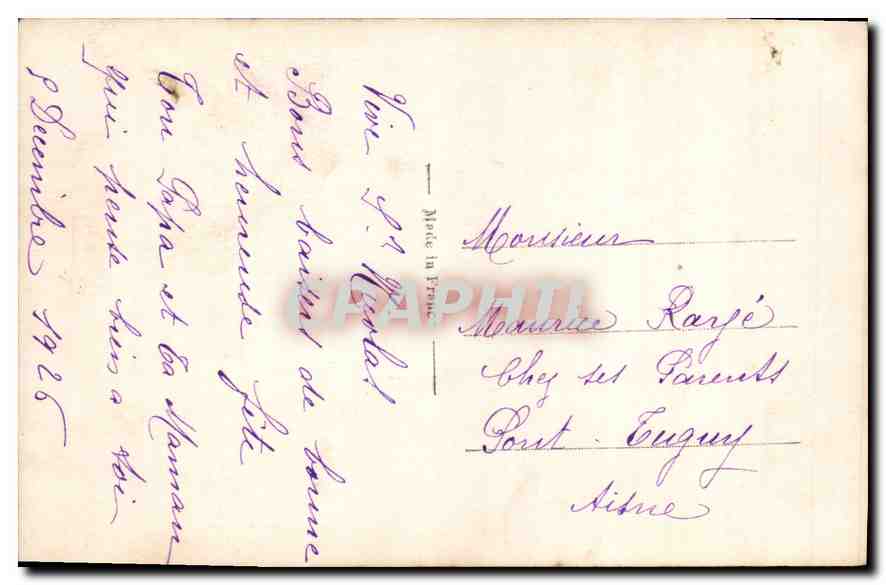 Vive St Nicolas
Bons baisers de bonne
et heureuse fête
Ton Papa et ta Maman
qui pense bien a toi
5 Decembre 1926
Made in France
Monsieur
Maurice
Chez ses Parents
Pont Tugny
Aisne
CPAPHIL